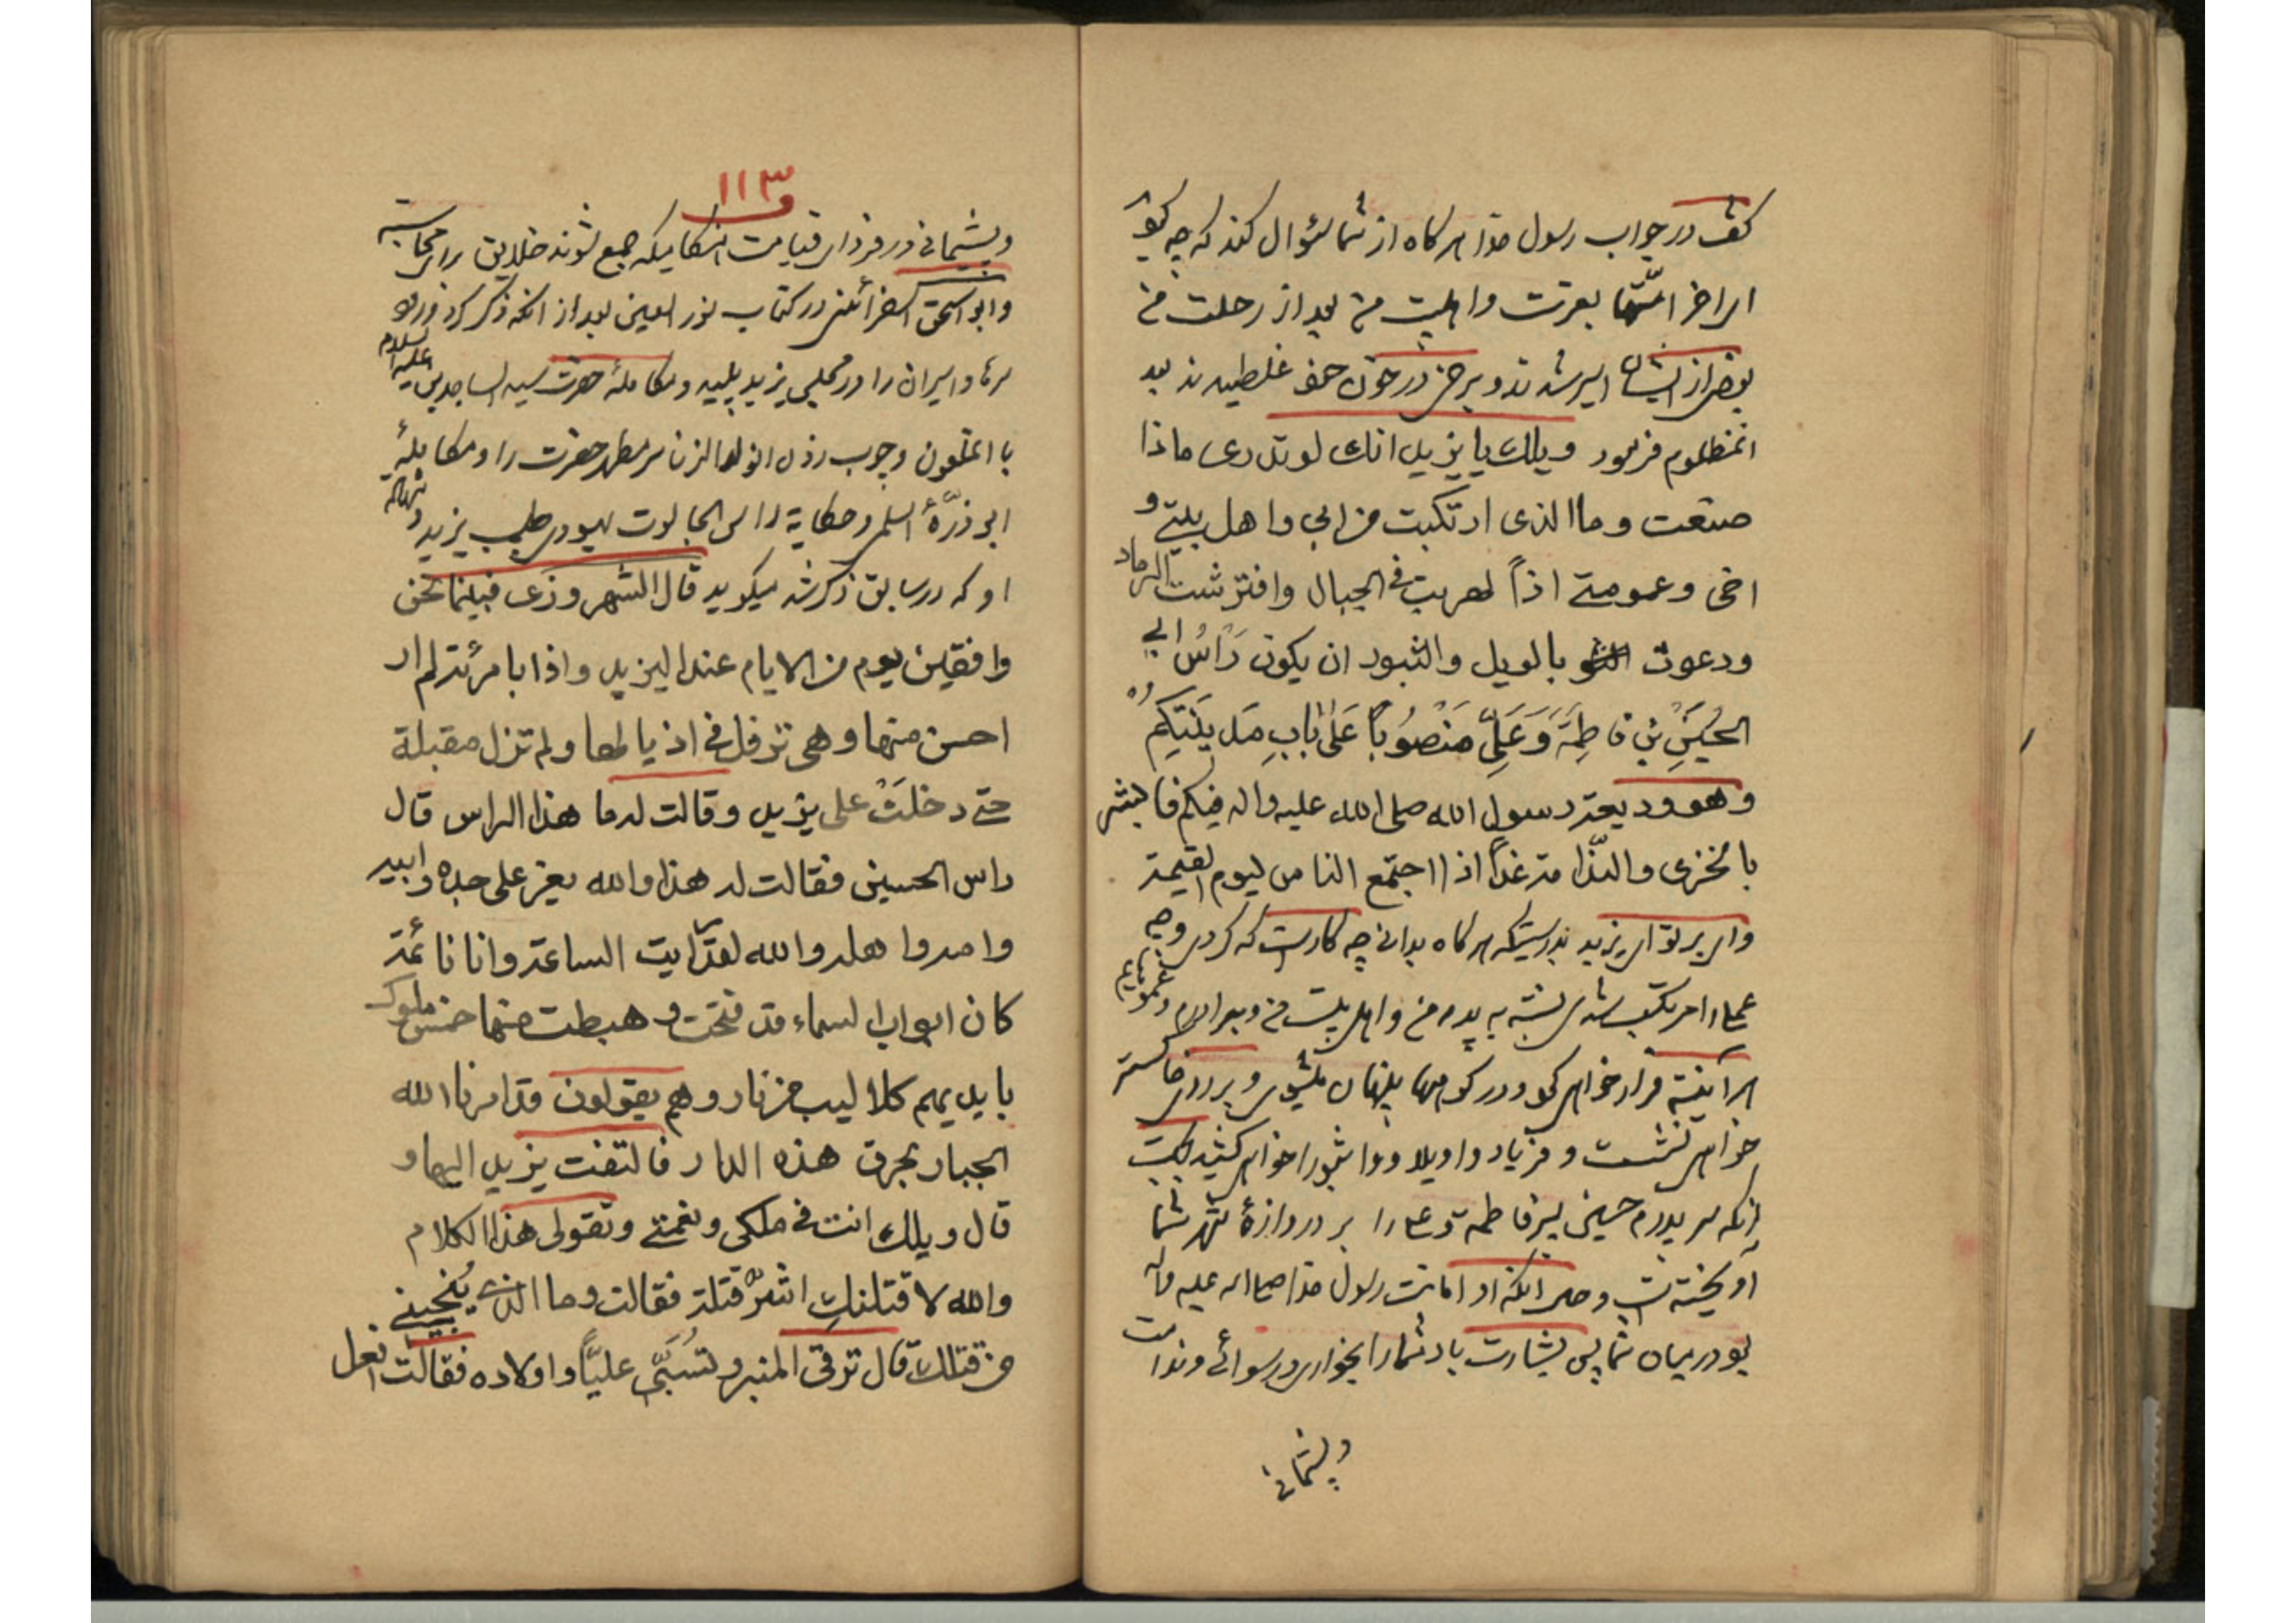 گفت در جواب رسول خدا هرگاه از شما سؤال کند که چه کردید
ای آخر امتها بعترت و اهلبیت من بعد از رحلت من
بعضی از ایشان اسیر شدند و برخی در خون خود غلطیدند بعد
انمظلوم فرمود ویلك یا یزید انك لو تدری ماذا
صنعت و ما الذی ارتکبت من ابی و اهل بیتی و
اخی و عمومتی اذاً لهربت فی الجبال وافترشت الرماد
ودعوت بالویل والثبور ان یکون رَاسُ ابی
الحُسَینِ بْنِ فاطِمَةَ وَ عَلِیٍّ مَنْصُوبًا عَلیٰ بابِ مَدینَتِکُم
وهو ودیعة رسول الله صلی الله علیه واله فیکم فابشر
بالخزی والندامة غداً اذا اجتمع الناس لیوم القیمة
وای بر تو ای یزید بدرستیکه هرگاه بدانی چه کار است که کردی و چه
عمل را مرتکب شدی نسبت به پدرم و اهل بیت من و برادرم و عموهایم
هرآئینه فرار خواهی کرد در کوهها پنهان میشوی و بر روی خاکستر
خواهی نشست و فریاد واویلا و واثبورا خواهی کشید بجهت
آنکه سر پدرم حسین پسر فاطمه و علی را بر دروازهٔ شهر شما
آویخته شد و حال آنکه او امانت رسول خدا صلی الله علیه وآله
بود در میان شما پس بشارت باد شما را بخواری و رسوائی و ندامت
و پشیمانی
۱۱۳
و پشیمانی در فردای قیامت هنگامیکه جمع شوند خلایق برای محاسبه
و ابو اسحق اسفرائنی در کتاب نور العین بعد از آنکه ذکر کرد ورود
سرها و اسیران را در مجلس یزید پلید و مکاملهٔ حضرت سید الساجدین علیه السلام
با انملعون و چوب زدن انولد الزنا سر مطهر حضرت را و مکاملهٔ
ابو ذرّهٔ اسلمی و حکایة راس الجالوت یهودی طبیب یزید و شهادت
او که در سابق ذکر شد میگوید قال الشهروزی فبینما نحن
وافقین یوم من الایام عند الیزید واذا بامرئة لم ار
احسن منها وهی ترفل فی اذیالها ولم تزل مقبلة
حتی دخلَتْ علی یزید وقالت له ما هذا الراس قال
راس الحسین فقالت له هذا والله یعز علی جده وابیه
وامه واهله والله لقد رایت الساعة وانا نائمة
کان ابواب السماء قد فتحت وهبطت منها خمس ملوك
بایدیهم کلالیب من نار وهم یقولون قد امرنا الله
الجبار بحرق هذه الدار فالتفت یزید الیها و
قال ویلك انت فی ملکی ونعمتی وتقولی هذا الکلام
والله لاقتلنكِ اشرّ قتلة فقالت وما الذی یُنجینی
من قتلك قال ترقی المنبر وتسُبّی علیّاً واولاده فقالت افعل